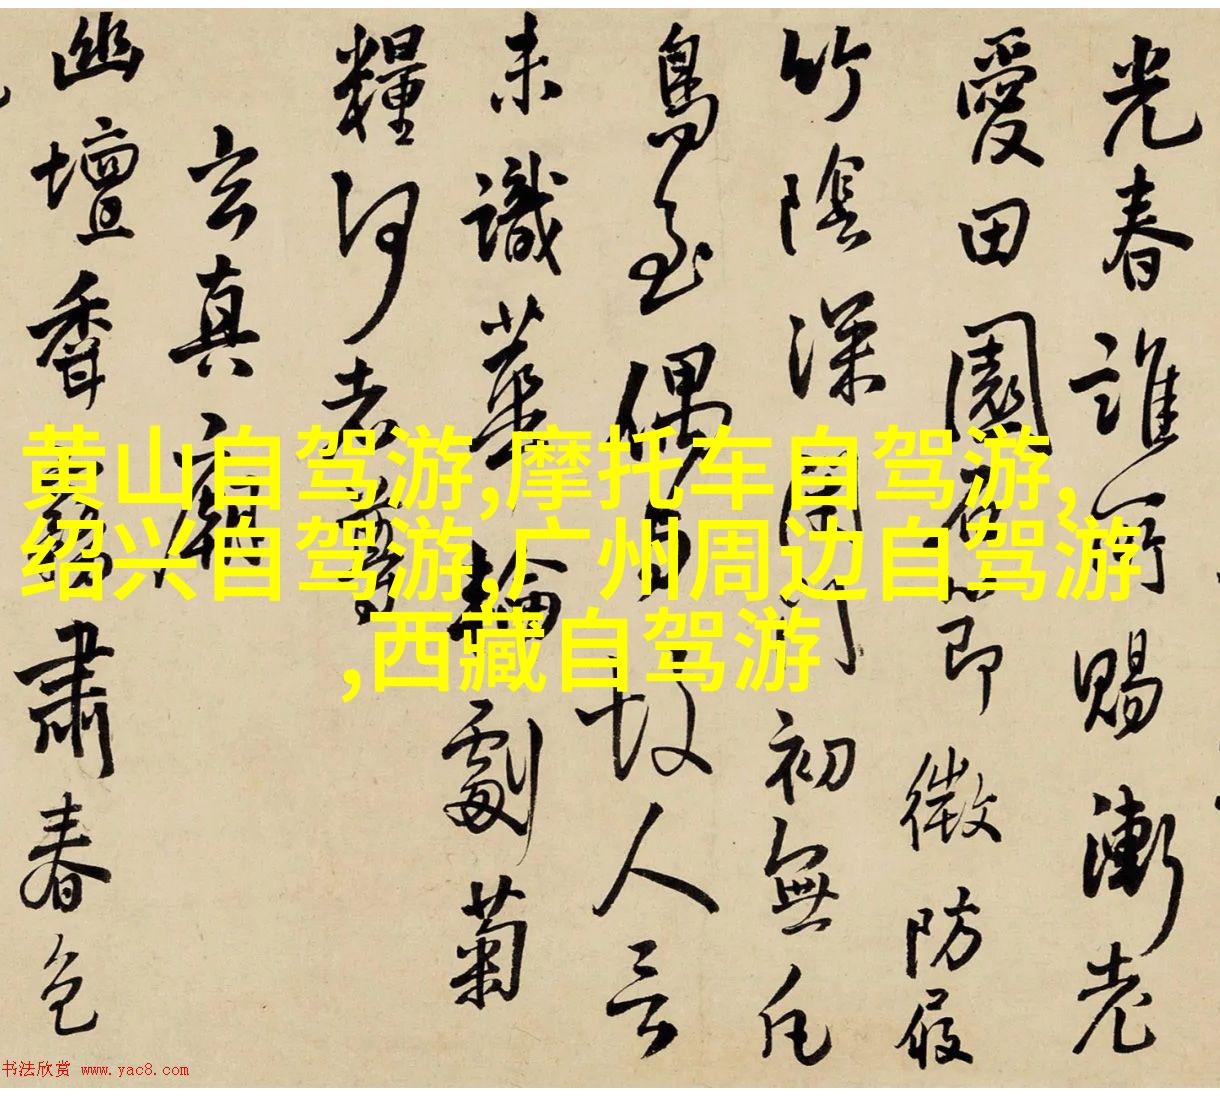 光春誰所賜漸老
愛田園居即微防屐
竹陰深閉門初無凡
鳥至偶有故人言
未識華輪劇菊
糧何老夢
玄真廟
幽壇香霧肅春色
黄山自驾游,摩托车自驾游,
绍兴自驾游,广州周边自驾游
,西藏自驾游
书法欣赏 www.yac8.com